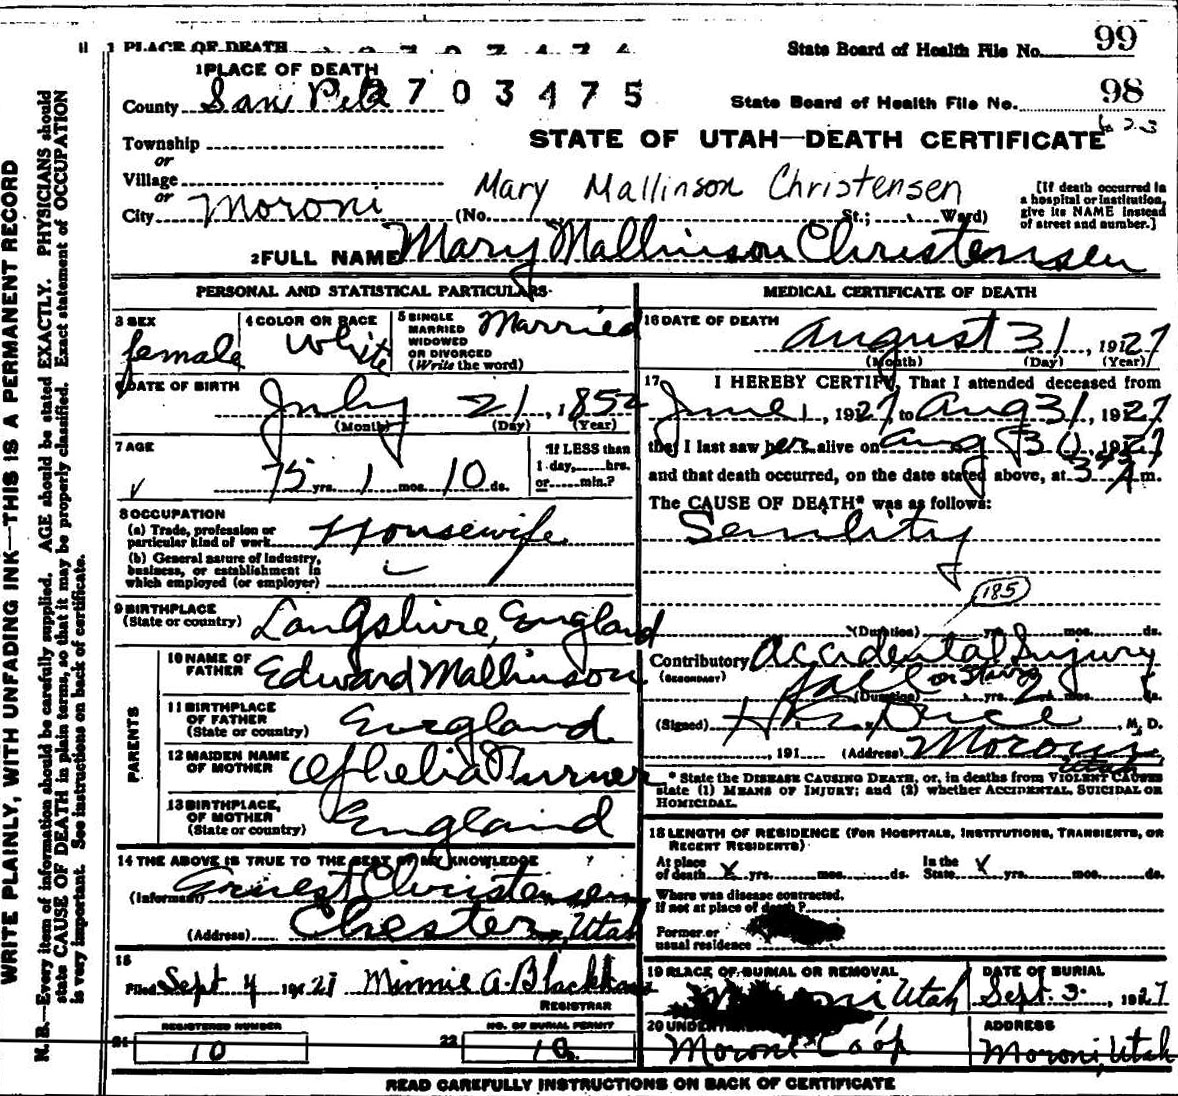 1 PLACE OF DEATH
State Board of Health File No. 99
1 PLACE OF DEATH
County San Pete 2703475
State Board of Health File No. 98
623
Township
STATE OF UTAH—DEATH CERTIFICATE
or
Village
Mary Mallinson Christensen
or
City Moroni (No. St.; Ward)
[If death occurred in a hospital or institution, give its NAME instead of street and number.]
2 FULL NAME Mary Mallinson Christensen
PERSONAL AND STATISTICAL PARTICULARS
3 SEX female
4 COLOR OR RACE White
5 SINGLE MARRIED WIDOWED OR DIVORCED (Write the word) Married
6 DATE OF BIRTH
July 21, 1852
(Month) (Day) (Year)
7 AGE
75 yrs. 1 mos. 10 ds.
If LESS than 1 day, hrs. or min.?
8 OCCUPATION
(a) Trade, profession or particular kind of work Housewife
(b) General nature of industry, business, or establishment in which employed (or employer)
9 BIRTHPLACE
(State or country) Langshire, England
PARENTS
10 NAME OF FATHER Edward Mallinson
11 BIRTHPLACE OF FATHER (State or country) England
12 MAIDEN NAME OF MOTHER Turner
13 BIRTHPLACE OF MOTHER (State or country) England
14 THE ABOVE IS TRUE TO THE BEST OF MY KNOWLEDGE
(Informant) Ernest Christensen
(Address) Chester, Utah
15
Filed Sept 4 1927 Minnie A. Blackham
REGISTRAR
REGISTERED NUMBER
21 10
NO. OF BURIAL PERMIT
22 10
MEDICAL CERTIFICATE OF DEATH
16 DATE OF DEATH
August 31, 1927
(Month) (Day) (Year)
17 I HEREBY CERTIFY, That I attended deceased from
June 1, 1927, to Aug 31, 1927
that I last saw her alive on Aug 30, 1927
and that death occurred, on the date stated above, at 3 A m.
The CAUSE OF DEATH* was as follows:
Senility
185
(Duration) yrs. mos. ds.
Contributory Accidental Injury
(SECONDARY) fall on stairs
(Duration) yrs. 2 mos. ds.
(Signed) M. D.
, 191 (Address) Moroni Utah
* State the DISEASE CAUSING DEATH, or, in deaths from VIOLENT CAUSES state (1) MEANS OF INJURY; and (2) whether ACCIDENTAL, SUICIDAL OR HOMICIDAL.
18 LENGTH OF RESIDENCE (FOR HOSPITALS, INSTITUTIONS, TRANSIENTS, OR RECENT RESIDENTS)
At place of death X yrs. mos. ds. In the State X yrs. mos. ds.
Where was disease contracted, If not at place of death?
Former or usual residence
19 PLACE OF BURIAL OR REMOVAL Moroni Utah
DATE OF BURIAL Sept. 3, 1927
20 UNDERTAKER Moroni Co op
ADDRESS Moroni, Utah
READ CAREFULLY INSTRUCTIONS ON BACK OF CERTIFICATE
WRITE PLAINLY, WITH UNFADING INK—THIS IS A PERMANENT RECORD
N. B.—Every item of information should be carefully supplied. AGE should be stated EXACTLY. PHYSICIANS should
state CAUSE OF DEATH in plain terms, so that it may be properly classified. Exact statement of OCCUPATION
is very important. See instructions on back of certificate.